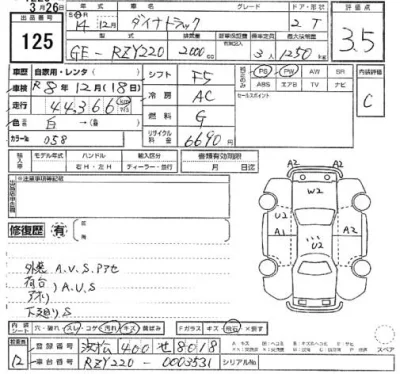 3月26日
出品番号 125
S H 年 月 ダイナトラック グレード ドア・形状 評価点
14年12月 2 T 3.5
GE-RZY220 2000cc 3人 1250kg
車歴 自家用・レンタ シフト F5 PS PW AW SR 内装評価
車検 R8年12月(18日) ABS エアB TV ナビ C
走行 44,366 km 冷房 AC セールスポイント
色 白 燃料 G
カラーNo 058 リサイクル料金 6690円
輸入車 モデル年式 ハンドル 輸入区分 書類有効期限
年 右H・左H ディーラー・並行 月 日迄
※注意事項等記載
A2 A2
W2
U2
A1 U2 A1
A2 A2
修復歴 有
外装 A.U.S.Pアセ
荷台
アオリ A.U.S
下廻りS
内装シート 穴・破れ スレ・コゲ 汚れ キズ 黄ばみ Fガラス キズ 飛石 ×倒す スペア
12 登録番号 浜松 400 せ 8018
車台番号 RZY220-0003531 シリアルNo